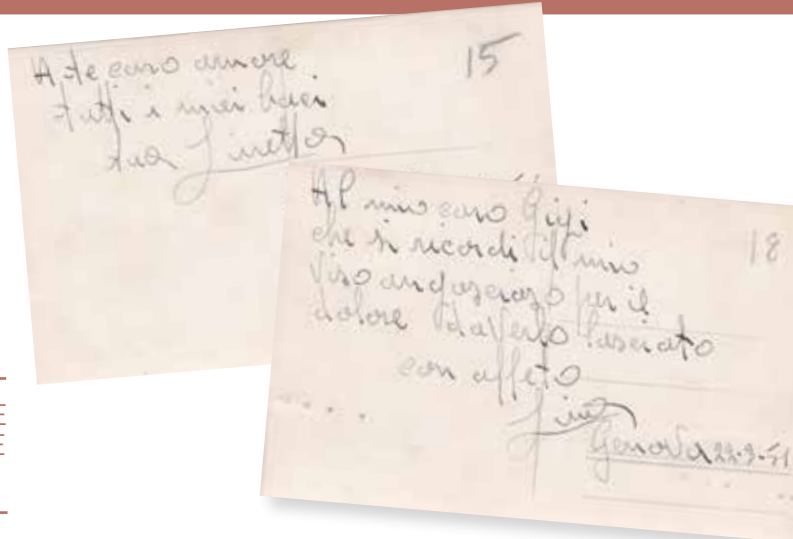 15
A te caro amore
tutti i miei baci
tua Linetta
18
Al mio caro Gigi
che si ricordi il mio
viso angosciato per il
dolore d'averlo lasciato
con affeto
Lina
Genova 22-9-51